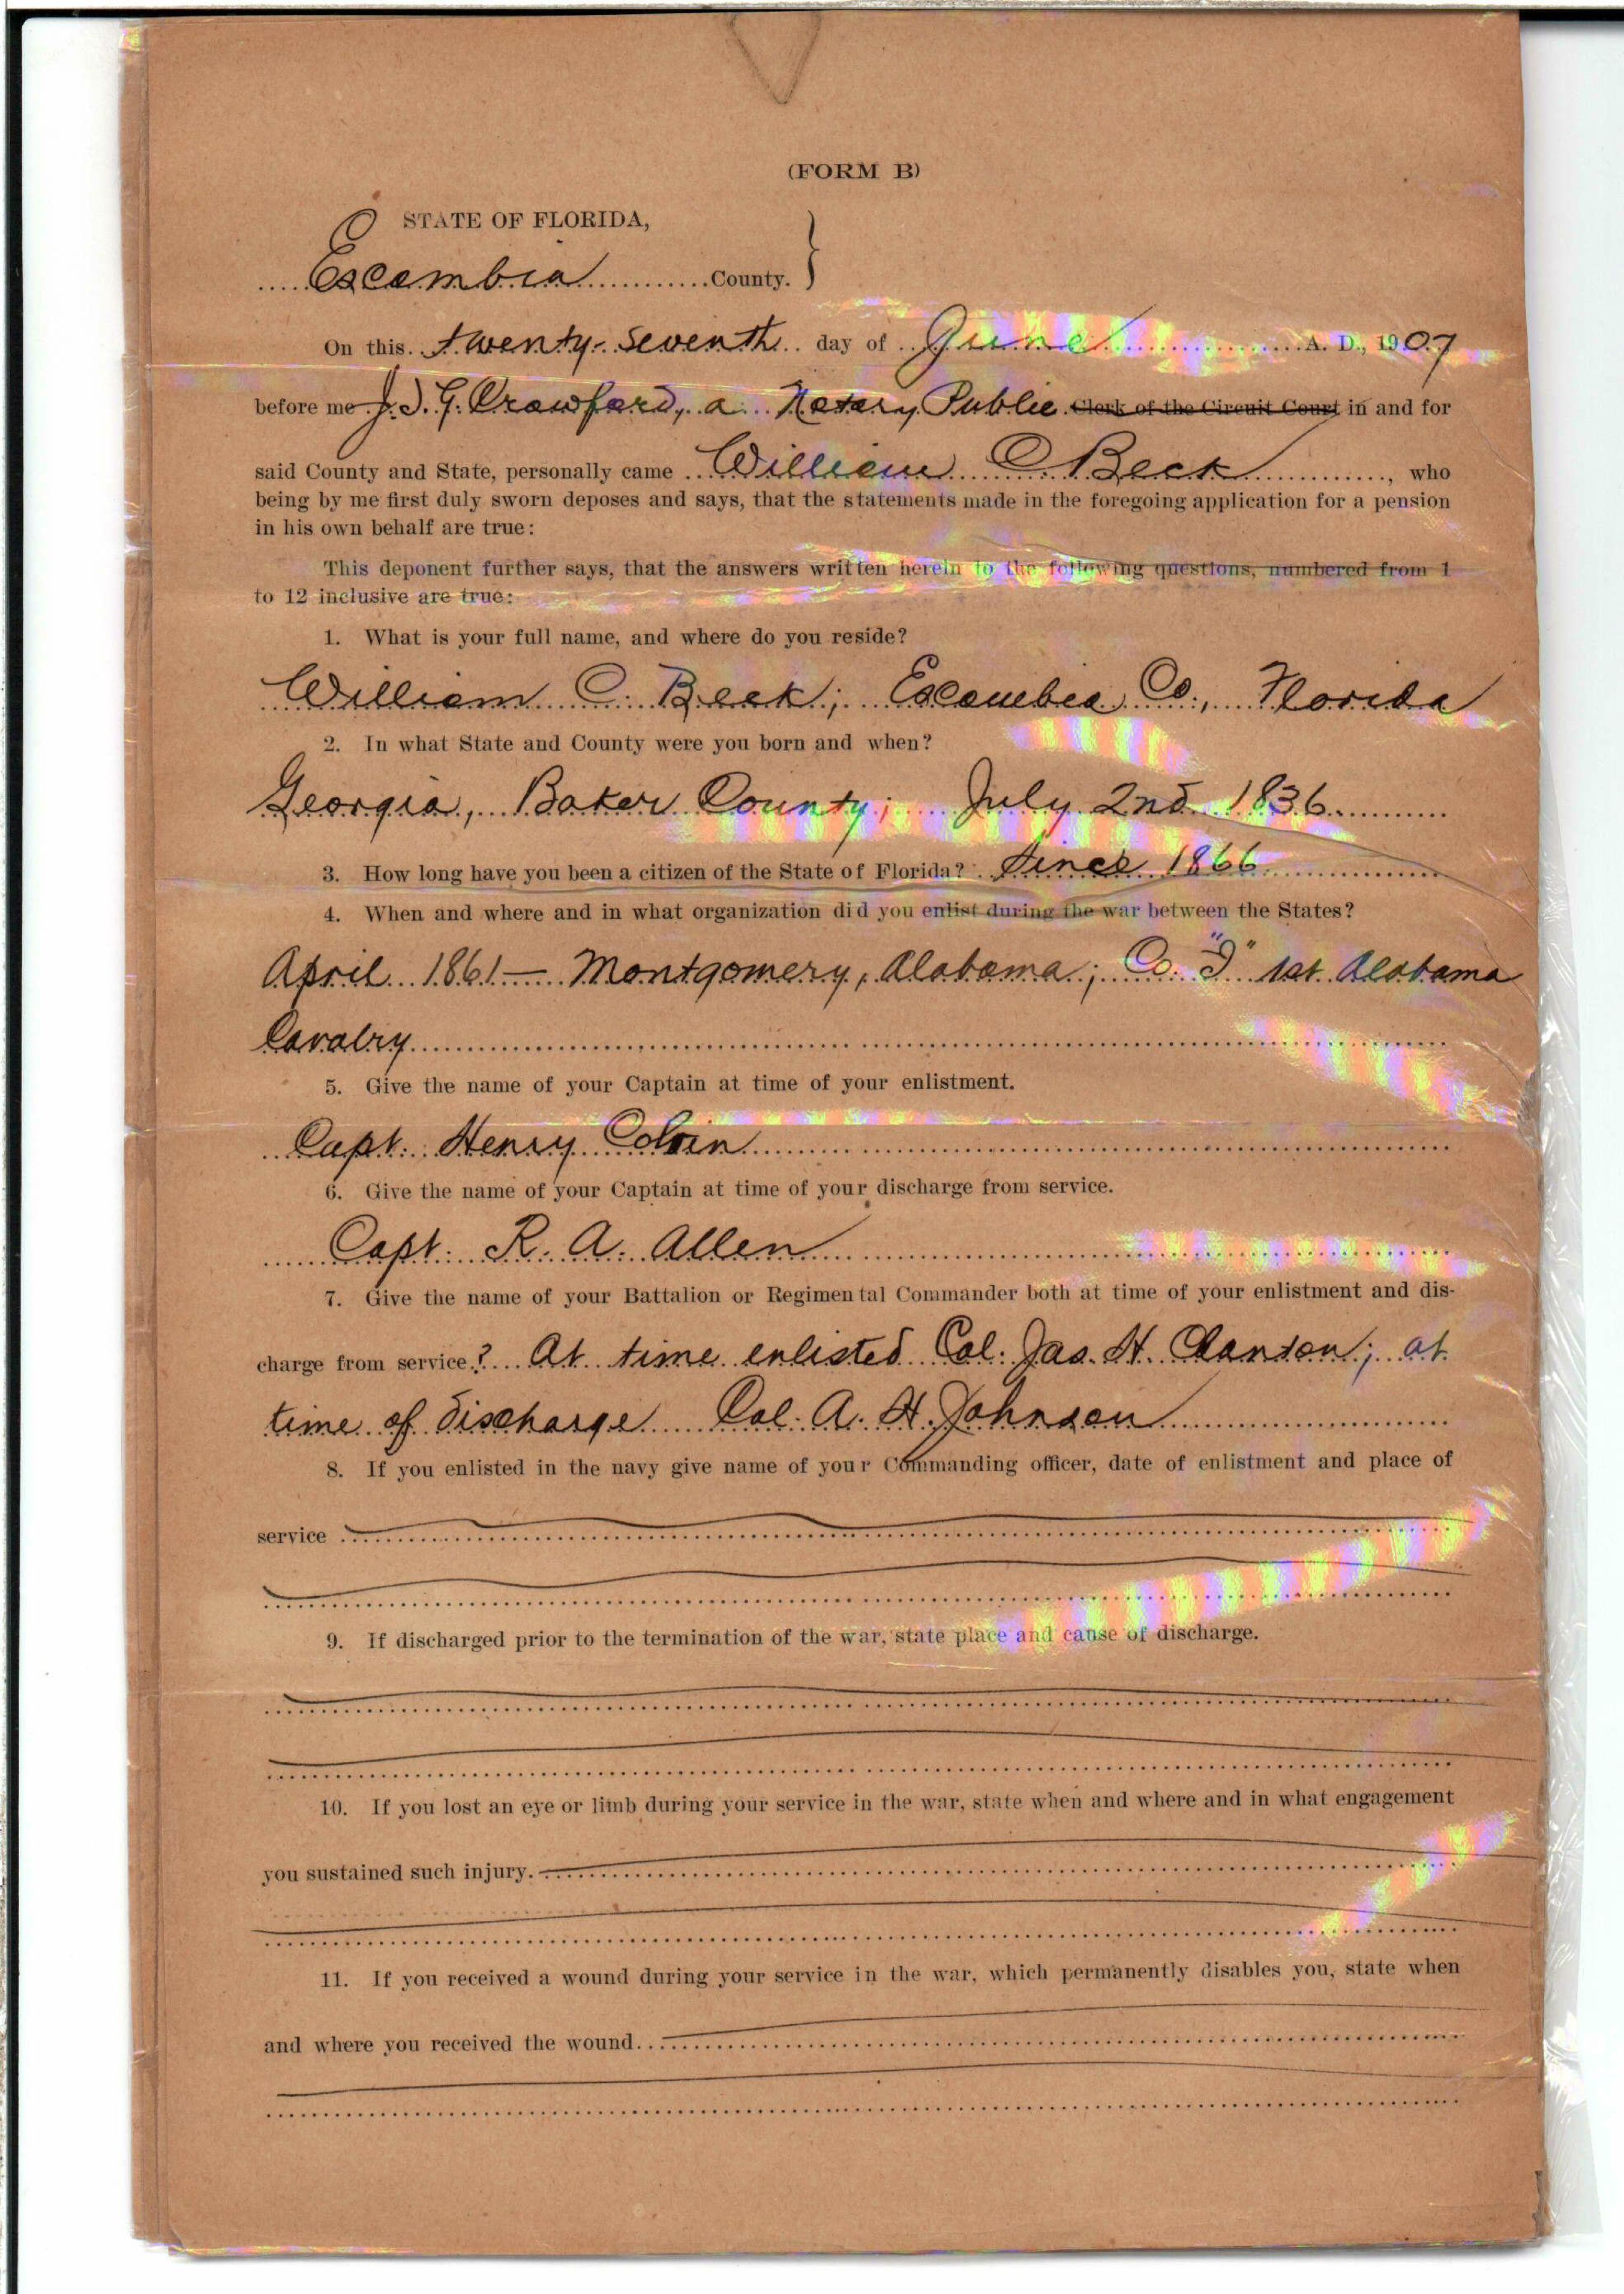 (FORM B)
STATE OF FLORIDA,
Escambia County. }
On this twenty-seventh day of June A. D., 1907
before me J. D. G. Crawford, a Notary Public Clerk of the Circuit Court in and for
said County and State, personally came William C. Beck, who
being by me first duly sworn deposes and says, that the statements made in the foregoing application for a pension
in his own behalf are true:
This deponent further says, that the answers written herein to the following questions, numbered from 1
to 12 inclusive are true:
1. What is your full name, and where do you reside?
William C. Beck; Escambia Co., Florida
2. In what State and County were you born and when?
Georgia, Baker County; July 2nd 1836
3. How long have you been a citizen of the State of Florida? Since 1866
4. When and where and in what organization did you enlist during the war between the States?
April 1861 — Montgomery, Alabama; Co. "I" 1st Alabama
Cavalry
5. Give the name of your Captain at time of your enlistment.
Capt. Henry Colvin
6. Give the name of your Captain at time of your discharge from service.
Capt. R. A. Allen
7. Give the name of your Battalion or Regimental Commander both at time of your enlistment and dis-
charge from service? At time enlisted Col. Jas. H. Clanton; at
time of discharge Col. A. H. Johnson
8. If you enlisted in the navy give name of your Commanding officer, date of enlistment and place of
service
9. If discharged prior to the termination of the war, state place and cause of discharge.
10. If you lost an eye or limb during your service in the war, state when and where and in what engagement
you sustained such injury.
11. If you received a wound during your service in the war, which permanently disables you, state when
and where you received the wound